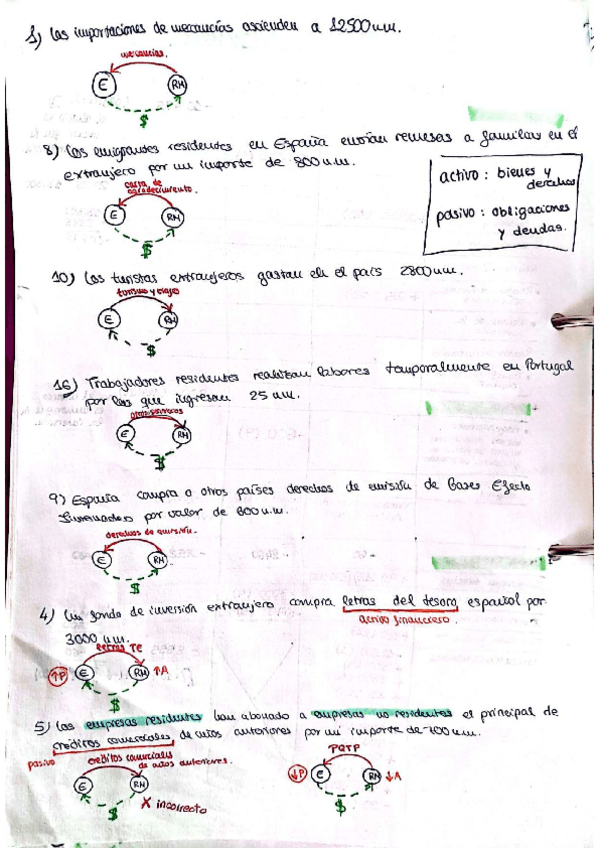 1) Las importaciones de mercancías ascienden a 12500 u.m.
mercancías.
E RM
$
8) Los emigrantes residentes en España envían remesas a familias en el
extranjero por un importe de 800 u.m.
carta de
agradecimiento.
E RM
$
activo: bienes y
derechos
pasivo: obligaciones
y deudas.
10) Los turistas extranjeros gastan en el país 2800 u.m.
turismo y viajes
E RM
$
16) Trabajadores residentes realizan labores temporalmente en Portugal
por las que ingresan 25 u.m.
E RM
$
9) España compra a otros países derechos de emisión de Gases Efecto
Invernadero por valor de 600 u.m.
derechos de emisión.
E RM
$
4) Un fondo de inversión extranjero compra letras del tesoro español por
activo financiero.
3000 u.m.
letras TE
↑P E RM ↑A
$
5) Las empresas residentes han abonado a empresas no residentes el principal de
créditos comerciales de años anteriores por un importe de 700 u.m.
pasivo créditos comerciales
de años anteriores.
E RM
$
X incorrecto
PQTP
↓P E RM ↓A
$